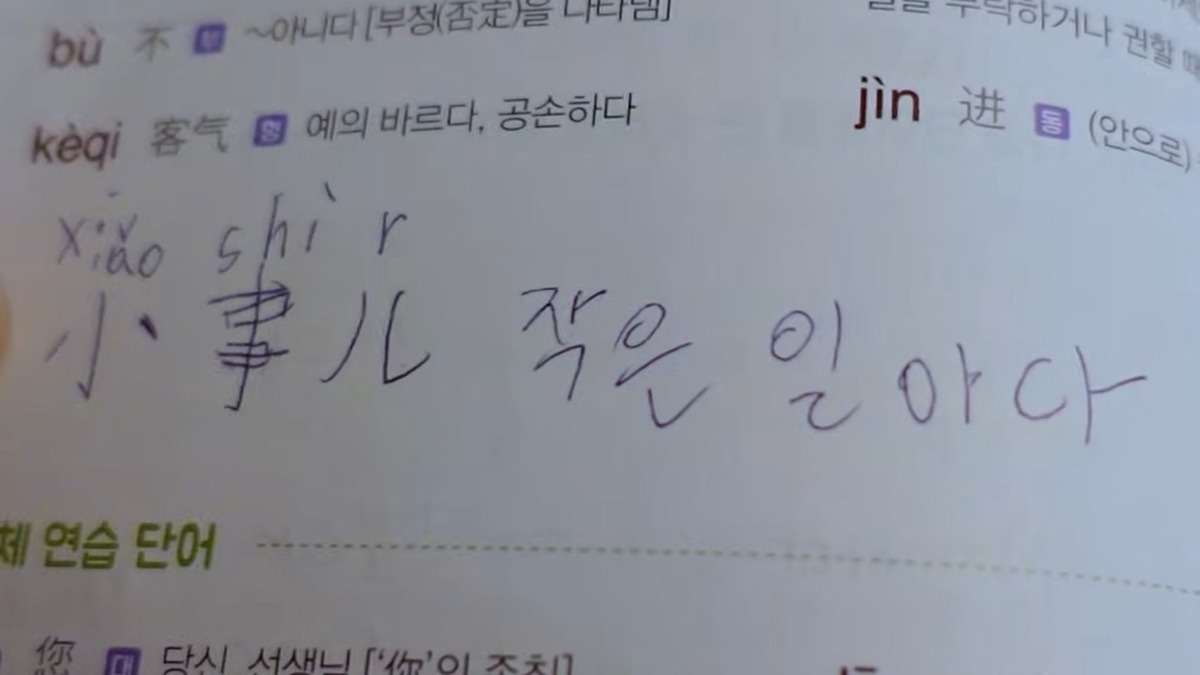 bù 不 부 ~아니다 [부정(否定)을 나타냄]
kèqi 客气 형 예의 바르다, 공손하다
xiǎo shì r
小事儿 작은 일 아다
체 연습 단어
您 대 당신, 선생님 ['你'의 존칭]
부탁하거나 권할 때
jìn 进 동 (안으로)